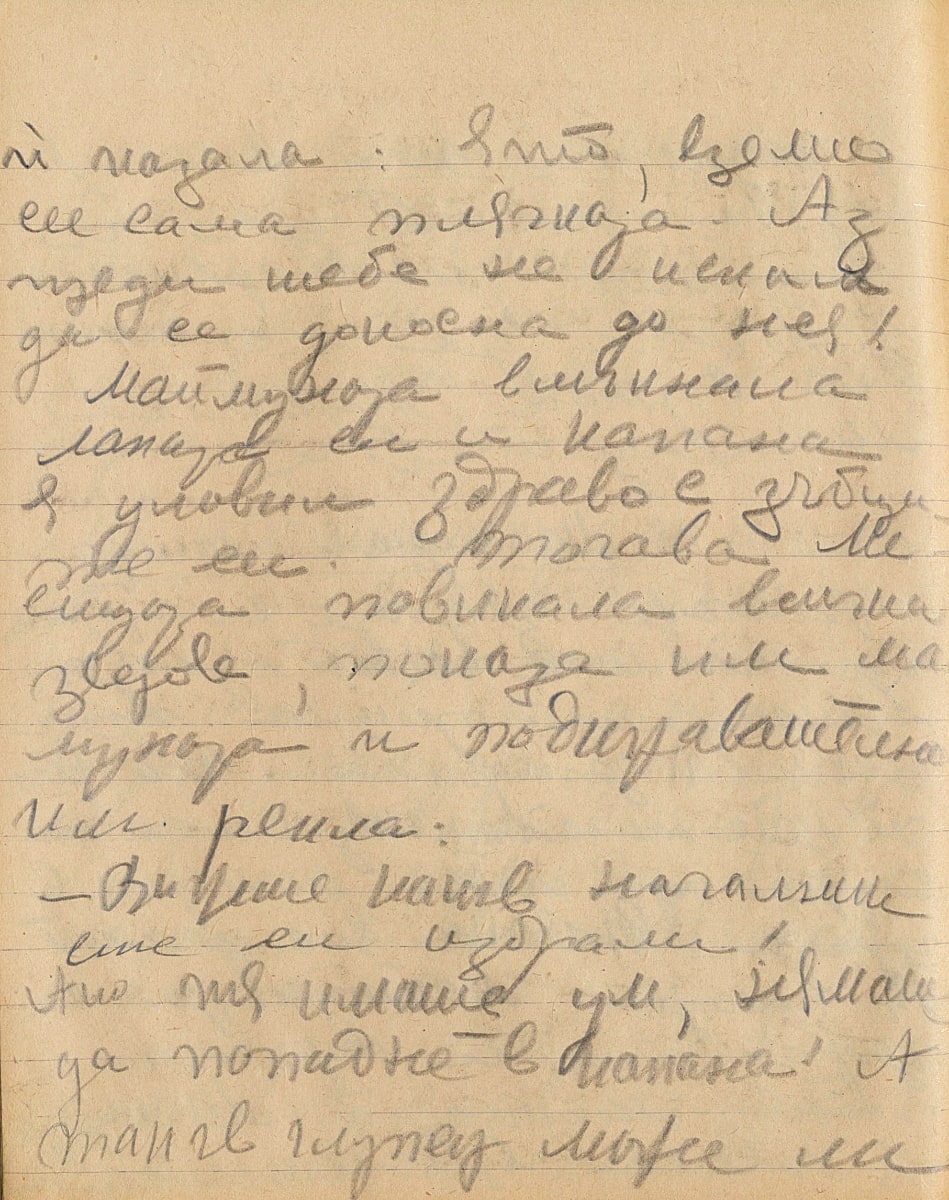 ѝ казала: Ято, вземи
си сама плячката. Аз
преди тебе не исках
да се докосна до нея!
Маймуната вмъкнала
лапата си и капана
я уловил здраво с зъбци
те си. Тогава Ли
сицата повикала всички
зверове, показа им май
муната и подигравателно
им рекла:
– Видите какъв началник
сте си избрали!
Ако тя имаше ум, нямаше
да попадне в капана! А
такъв глупец може ли